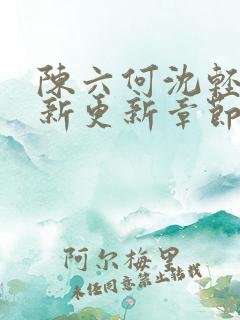 陳六何沈輕
新更新章節
阿尔梅里
未经同意禁止转载